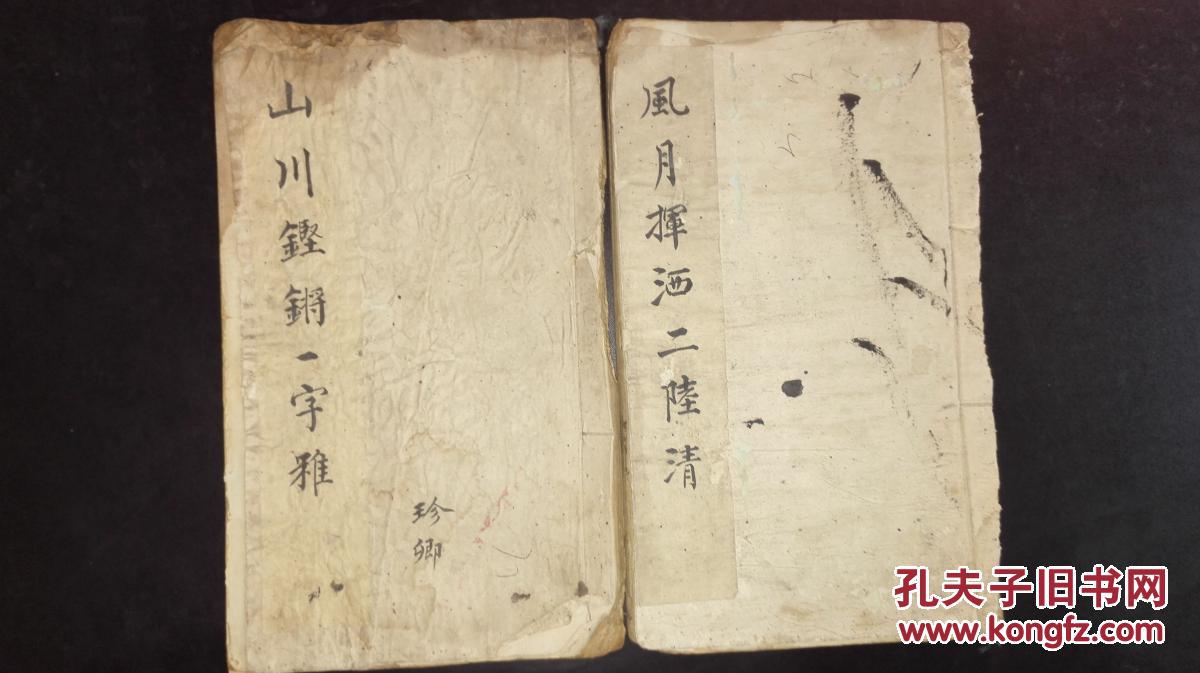 山川鏗鏘一字雅
珍卿
風月揮洒二陸清
孔夫子旧书网
www.kongfz.com